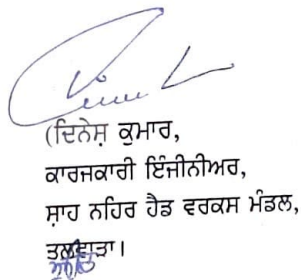 (ਦਿਨੇਸ਼ ਕੁਮਾਰ,
ਕਾਰਜਕਾਰੀ ਇੰਜੀਨੀਅਰ,
ਸ਼ਾਹ ਨਹਿਰ ਹੈਡ ਵਰਕਸ ਮੰਡਲ,
ਤਲਵਾੜਾ।